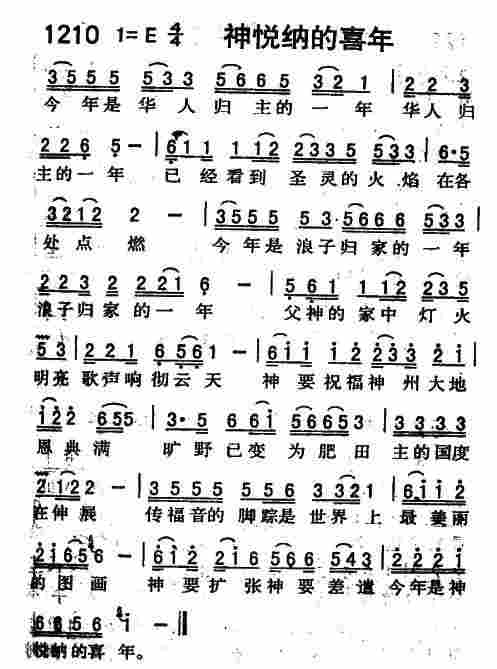 1210 1=E 4/4 神悦纳的喜年
3555 533 5665 321 | 223
今年是华人归主的一年 华人归
226 5- | 611 112 2335 533 | 6·5
主的一年 已经看到圣灵的火焰在各
3212 2 - | 3555 53·5666 533 |
处点燃 今年是浪子归家的一年
223 2221 6 - | 561 112 235
浪子归家的一年 父神的家中灯火
53 | 221 6561 - | 611 12 233 21 |
明亮歌声响彻云天 神要祝福神州大地
122 655 | 3·5 661 56653 | 3333
恩典满 旷野已变为肥田 主的国度
2122 - | 3555 556 3321 | 6112
在伸展 传福音的脚踪是世界上最美丽
21656 - | 612 216 566 543 | 2221
的图画 神要扩张神要差遣今年是神
6656 1 - ||
悦纳的喜年。